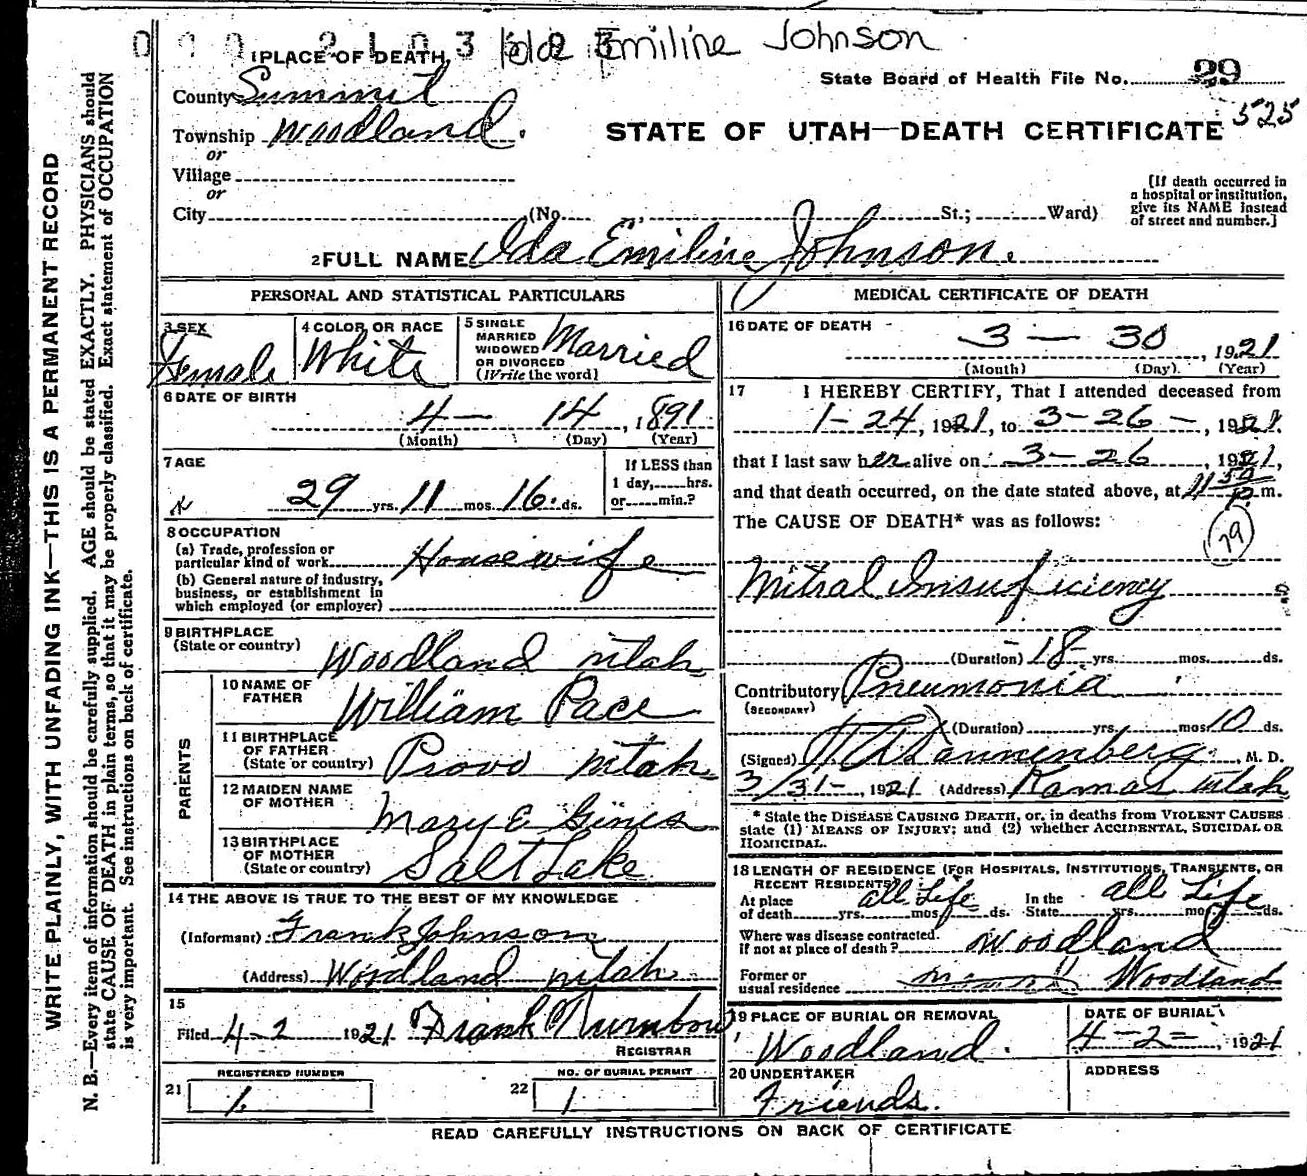 Ida Emiline Johnson
1 PLACE OF DEATH
State Board of Health File No. 29
County Summit
525
Township Woodland.
STATE OF UTAH—DEATH CERTIFICATE
or
Village
or
City (No. St.; Ward)
[If death occurred in
a hospital or institution,
give its NAME instead
of street and number.]
2 FULL NAME Ida Emiline Johnson.
PERSONAL AND STATISTICAL PARTICULARS
3 SEX
Female
4 COLOR OR RACE
White
5 SINGLE
MARRIED
WIDOWED
OR DIVORCED
(Write the word)
Married
6 DATE OF BIRTH
4 — 14, 1891
(Month) (Day) (Year)
7 AGE
29 yrs. 11 mos. 16 ds.
If LESS than
1 day, hrs.
or min.?
8 OCCUPATION
(a) Trade, profession or
particular kind of work Housewife
(b) General nature of industry,
business, or establishment in
which employed (or employer)
9 BIRTHPLACE
(State or country)
Woodland Utah
PARENTS
10 NAME OF
FATHER
William Pace
11 BIRTHPLACE
OF FATHER
(State or country)
Provo Utah
12 MAIDEN NAME
OF MOTHER
Mary E Gines
13 BIRTHPLACE
OF MOTHER
(State or country)
Salt Lake
14 THE ABOVE IS TRUE TO THE BEST OF MY KNOWLEDGE
(Informant) Frank Johnson
(Address) Woodland Utah
15
Filed 4-2 1921 Frank Turnbow
REGISTRAR
REGISTERED NUMBER
21 1.
NO. OF BURIAL PERMIT
22 1
MEDICAL CERTIFICATE OF DEATH
16 DATE OF DEATH
3 — 30, 1921
(Month) (Day). (Year)
17 I HEREBY CERTIFY, That I attended deceased from
1-24, 1921, to 3-26-, 1921.
that I last saw her alive on 3-26, 1921,
and that death occurred, on the date stated above, at 11 50 P. m.
The CAUSE OF DEATH* was as follows:
79
Mitral Insuficiency
(Duration) 18 yrs. mos. ds.
Contributory Pneumonia
(SECONDARY)
(Duration) yrs. mos 10 ds.
(Signed) Dannenberg, M. D.
3/31-, 1921 (Address) Kamas Utah
* State the DISEASE CAUSING DEATH, or, in deaths from VIOLENT CAUSES
state (1) MEANS OF INJURY; and (2) whether ACCIDENTAL, SUICIDAL OR
HOMICIDAL.
18 LENGTH OF RESIDENCE (FOR HOSPITALS, INSTITUTIONS, TRANSIENTS, OR
RECENT RESIDENTS)
At place
of death yrs. mos. ds. all Life
In the
State yrs. mos. ds. all Life
Where was disease contracted.
if not at place of death? Woodland
Former or
usual residence Woodland
19 PLACE OF BURIAL OR REMOVAL
Woodland.
DATE OF BURIAL
4-2-, 1921
20 UNDERTAKER
Friends.
ADDRESS
READ CAREFULLY INSTRUCTIONS ON BACK OF CERTIFICATE
WRITE PLAINLY, WITH UNFADING INK—THIS IS A PERMANENT RECORD
N. B.—Every item of information should be carefully supplied. AGE should be stated EXACTLY. PHYSICIANS should
state CAUSE OF DEATH in plain terms, so that it may be properly classified. Exact statement of OCCUPATION
is very important. See instructions on back of certificate.